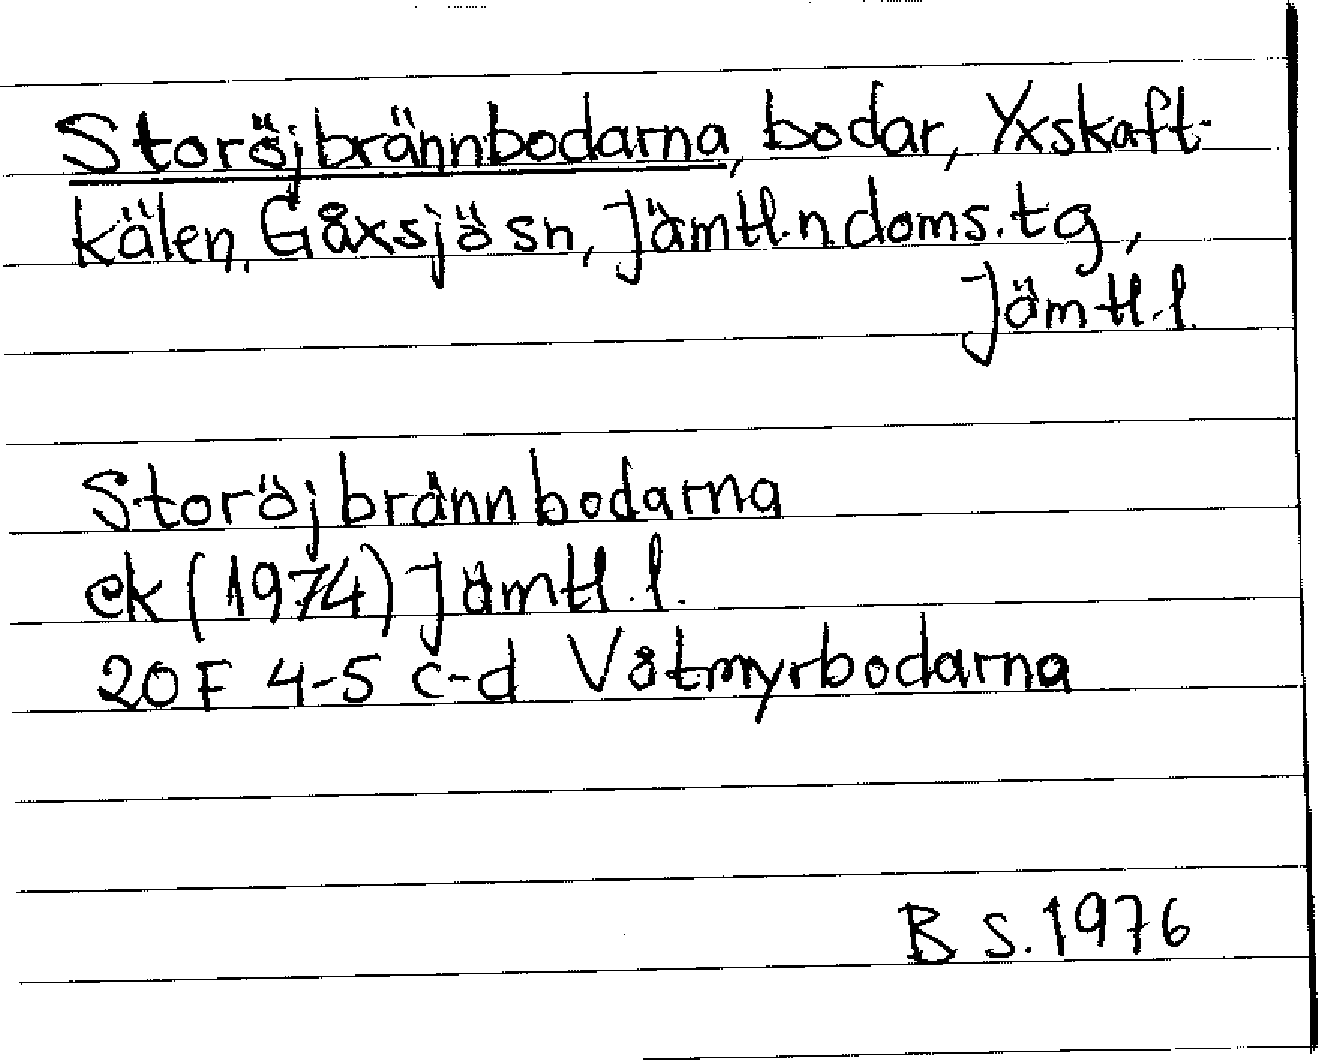 Storöjbrännbodarna, bodar, Yxskaft-
kälen, Gåxsjö sn, Jämtl.n.doms.tg,
Jämtl.l.
Storöjbrännbodarna
ek (1974) Jämtl.l.
20F 4-5 c-d Våtmyrbodarna
B S. 1976